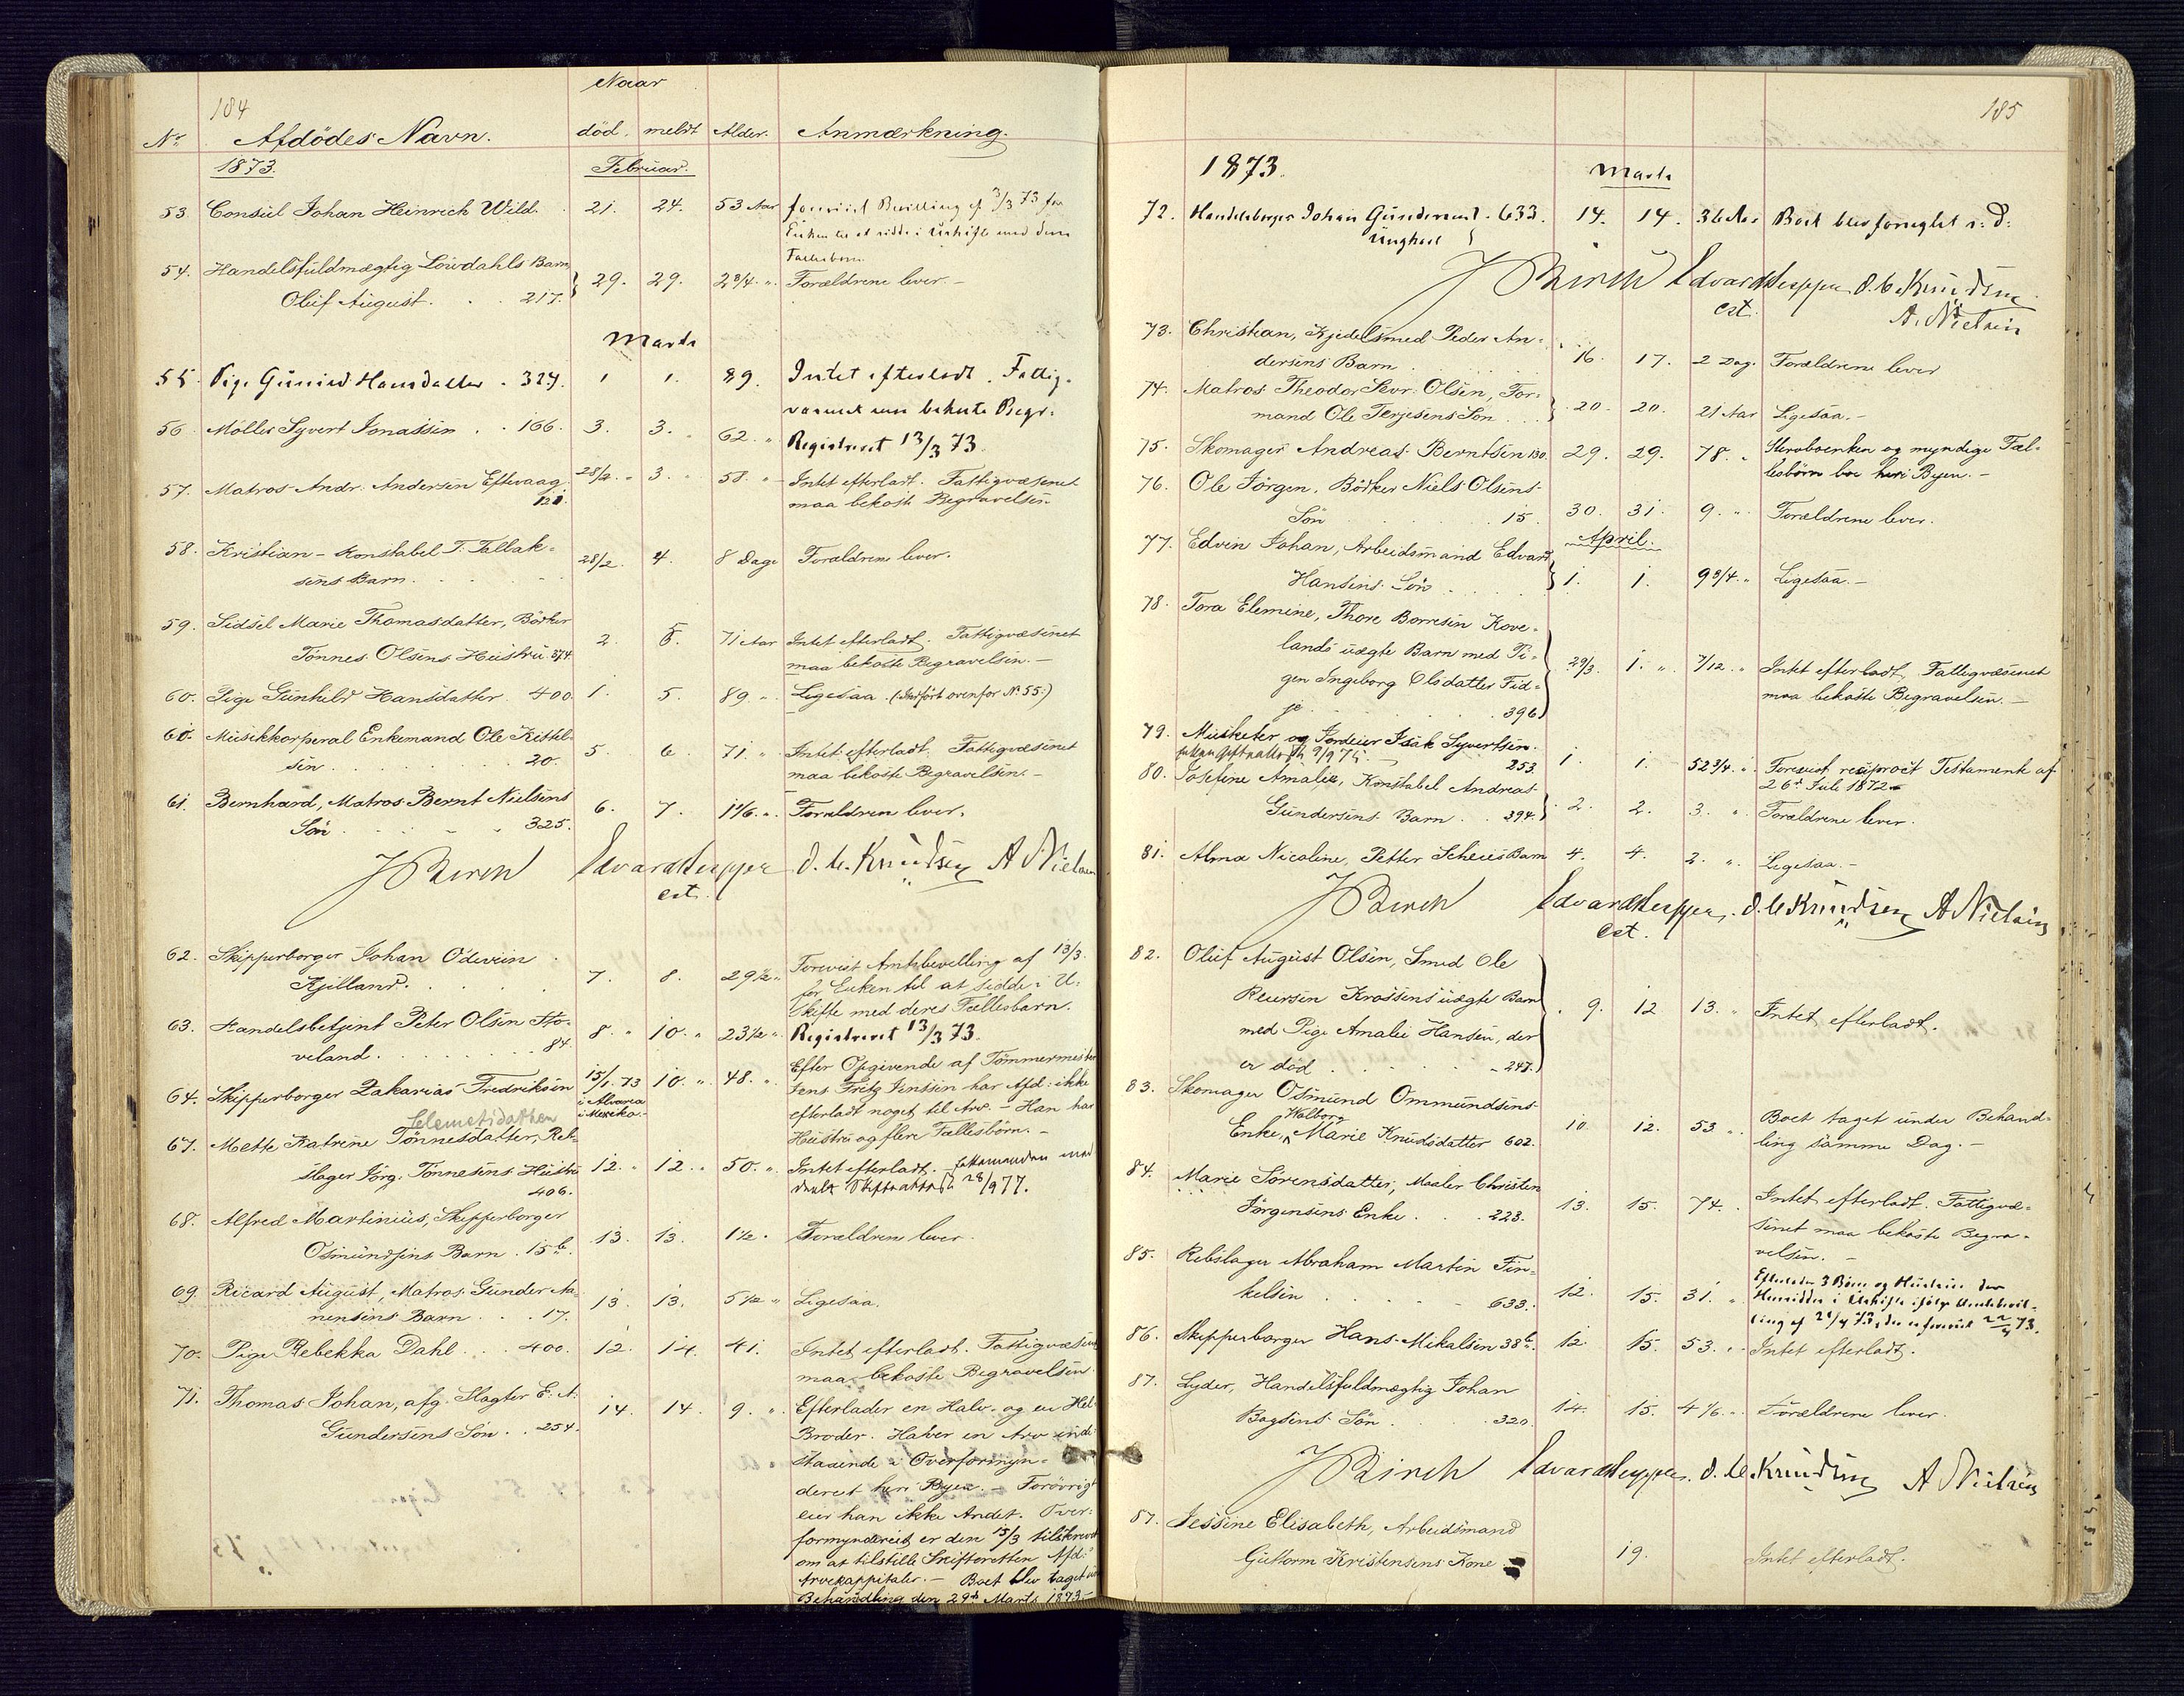 184
Naar
No Afdödes Navn. död. meldt Alder. Anmærkning.
1873. Februar.
53. Consul Johan Heinrich Wild. 21. 24. 53 Aar forevist Bevilling af 3/3 73 for
Enken til at sidde i Uskifte med deres
Fællesbørn.
54. Handelsfuldmægtig Löwdahls Barn
Oluf August. 217. 29. 29. 2 3/4 " Forældrene lever.
Marts
55. Pige Gunild Hansdatter. 324. 1 1. 89. Intet efterladt. Fattig-
væsenet maa bekoste Begr.
56. Möller Syvert Jonassen 166. 3. 3. 62. " Registreret 13/3 73.
57. Matros Andr. Andersen Eftevaag 28/2. " 3. 58. " Intet efterladt. Fattigvæsenet
121. maa bekoste Begravelsen.
58. Kristian - Konstabel T. Tallak-
sens Barn. 28/2. 4. 8 Dage Forældrene lever.
59. Sidsel Marie Thomasdatter, Bödker
Tönnes Olsens Hustru 374. 2. 5. 71 Aar Intet efterladt. Fattigvæsenet
maa bekoste Begravelsen. -
60. Pige Gunhild Hansdatter. 400. 1. 5. 89 " Ligesaa. (Indfört ovenfor No 55:)
60. Musikkorporal Enkemand Ole Kittel-
sen 20. 5. 6. 71. " Intet efterladt. Fattigvæsenet
maa bekoste Begravelsen. -
61. Bernhard, Matros Bernt Nielsens
Sön 325. 6. 7. 1 1/6. " Forældrene lever.
J Birch Edvard Jeppe O. C. Knudsen A Nielsen
cst.
62. Skipperborger Johan Ödevin
Kjilland. 7. 8. 29 1/2 " Forevist Amtsbevilling af 13/3.
for Enken til at sidde i U-
skifte med deres Fællesbarn.
63. Handelsbetjent Peter Olsen Ho-
veland. 84. 8. " 10. " 23 1/2 " Registreret 13/3 73.
64. Skipperborger Zakarias Fredriksen 15/1. 73 10. " 48. " Efter Opgivende af Tömmermester
i Alvaria
i Mexiko.
Jens Fritz Jensen har Afd: ikke
efterladt noget til Arv. - Han har
Hustru og flere Fællesbörn. -
Clemetsdatter
67. Mette Katrine Tönnesdatter, Reb-
slager Jörg. Tönnesens Hustru 12. " 12. " 50. " Intet efterladt.
406. 28/9 77.
68. Alfred Martinius, Skipperborger
Osmundsens Barn. 15b. 13. 13. 1 1/2. Forældrene lever.
69. Ricard August, Matros Gunder Aa-
nensens Barn 17. 13. 13. 5 1/2 " Ligesaa.
70. Pige Rebekka Dahl. 400. 12. 14. 41. Intet efterladt. Fattigvæsenet
maa bekoste Begravelsen.
71. Thomas Johan, afg. Slagter E. A.
Gundersens Sön. 254. 14. 14. 9. " Efterlader en Halv- og en Hel-
Broder. Haver en Arv inde-
staaende i Overformyn-
deriet her i Byen. - Forövrigt
eier han ikke Andet. Over-
formynderiet er den 15/3 tilskrevet
om at tilstille Skifteretten Afd:s
Arvekapitaler. - Boet blev taget under
Behandling den 29de Marts 1873. -
185
1873. Marts
72. Handelsborger Johan Gundersens. 633. 14. 14. 36 Aar Boet blev forseglet s: D:
Unghest
J Birch Edvard Jeppe O. C. Knudsen
cst. A. Nielsen
73. Christian, Kjedelsmed Peder An-
dersens Barn 16. 17. 2 Dag. Forældrene lever
74. Matros Theodor Sevr. Olsen, For-
mand Ole Terjesens Sön 20. 20. 21 Aar Ligesaa. -
75. Skomager Andreas Berntsen 130. 29. 29. 78. " Stervboenken og myndige Fæl-
lesbörn bor her i Byen. -
76. Ole Jörgen, Bödker Niels Olsens
Sön 15. 30. 31. 9. " Forældrene lever.
April.
77. Edvin Johan, Arbeidsmand Edvard
Hansens Sön 1. 1. 9 3/4. " Ligesaa. -
78. Tora Elemine, Thore Borresen Kove-
lands uægte Barn med Pi-
gen Ingeborg Olsdatter Fid-
je 396. 29/3. 1. " 7/12. " Intet efterladt, Fattigvæsenet
maa bekoste Begravelsen. -
79. Musketer og Jordeier Isak Syvertsen.
253. 1. 1. 52 3/4. " Forevist reciprocit Testament af
26de Juli 1872.
80. Josefine Amalie, Konstabel Andreas
Gundersens Barn 394. 2. 2. 3. " Forældrene lever.
81. Alma Nicoline, Petter Scheies Barn 4. 4. 2. " Ligesaa. -
J Birch Edvard Jeppe O. C. Knudsen A Nielsen
cst.
82. Oluf August Olsen, Smed Ole
Reiersen Krossens uægte Barn
med Pige Amalie Hansen, der
er död 247. 9. 12 13. " Intet efterladt.
83. Skomager Osmund Ommundsens
Wolborg
Enke, Marie Knudsdatter 602. 10. 12. 53 " Boet taget under Behand-
ling samme Dag. -
84. Marie Sörensdatter, Maaler Christen
Jörgensens Enke 223. 13. 15. 74. " Intet efterladt. Fattigvæ-
senet maa bekoste Begra-
velsen. -
85. Rebslager Abraham Martin Tin-
kelsen 633. 12. 15. 31. " Efterlader 3 Börn og Hustru der
hensidder i Uskifte ifölge Amtsbevil-
ling af 21/4 73, der er forevist 22/4 73.
86. Skipperborger Hans Mikalsen 38b. 12. 15. 53. " Intet efterladt.
87. Lyder, Handelsfuldmægtig Johan
Bogsens Sön 320. 14. 15. 4 1/6. " Forældrene lever.
J Birch Edvard Jeppe. O. C. Knudsen A Nielsen
87. Jessine Elisabeth, Arbeidsmand
Guttorm Kristensens Kone 19. Intet efterladt.